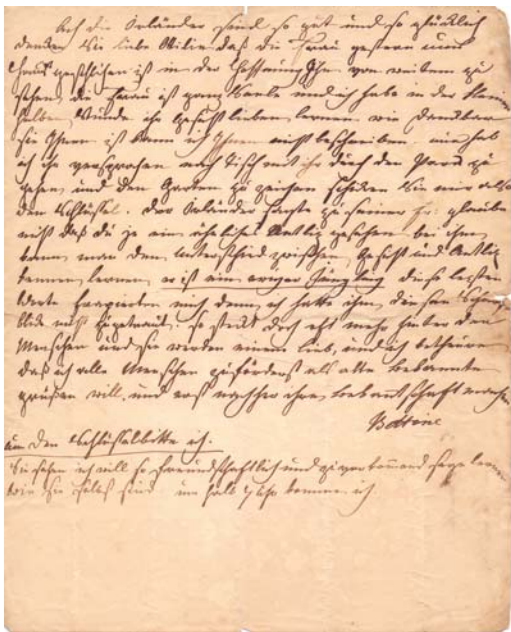 Ach die Irländer sind so gut und so glücklich
denken Sie liebe daß die Frau gestern ums
Haus geschlichen ist in der Hoffnung Ihn von weitem zu
sehen, die Frau ist ganz Seele und ich habe in der
halben Stunde ihr Gesicht lieben lernen wie dankbar
sie Ihnen ist kann ich Ihnen nicht beschreiben nun hab
ich ihr versprochen nach Tisch mit ihr durch den Park zu
gehen, und den Garten zu zeichen schicken Sie mir also
den Schlüssel. Der Irländer sagte zu seiner Fr: glaube
nicht daß du je ein ähnliches Antliz gesehen bei ihm
kann man den Unterschied zwischen Gesicht und Antliz
kennen lernen, er ist ein ewiger Jüngling diese lezten
Worte frapirten mich denn ich hatte ihm diesen
blick nicht zugetraut. so steckt doch oft mehr hinter den
Menschen und sie werden einem lieb, und ich betheure
daß ich alle Menschen zuförderst als alte bekannte
grüßen will, und erst nachher ihre bekantschaft machen
Bettine
um den Schlüssel bitte ich.
Sie sehen ich will so freundschaftlich und lernen
wie Sie selbst sind um halb Uhr komme ich